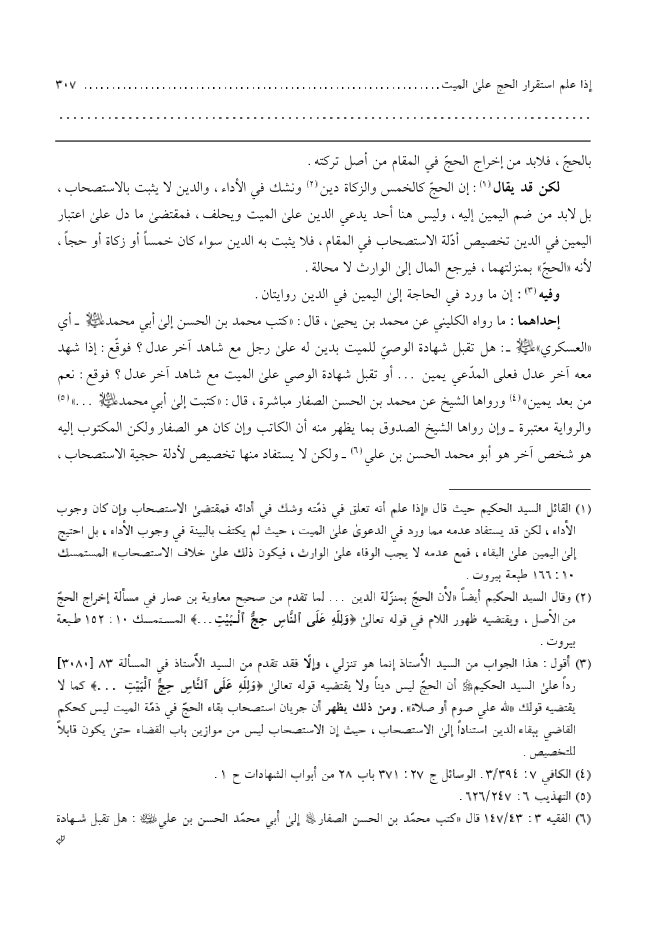 إذا علم استقرار الحج علىٰ الميت ............................................................ ٣٠٧
................................................................................
بالحجّ ، فلابد من إخراج الحجّ في المقام من أصل تركته .
لكن قد يقال (١) : إن الحجّ كالخمس والزكاة دين (٢) ونشك في الأداء ، والدين لا يثبت بالاستصحاب ،
بل لابد من ضم اليمين إليه ، وليس هنا أحد يدعي الدين علىٰ الميت ويحلف ، فمقتضىٰ ما دل علىٰ اعتبار
اليمين في الدين تخصيص أدلّة الاستصحاب في المقام ، فلا يثبت به الدين سواء كان خمساً أو زكاة أو حجاً ،
لأنه «الحجّ» بمنزلتهما ، فيرجع المال إلىٰ الوارث لا محالة .
وفيه (٣) : إن ما ورد في الحاجة إلىٰ اليمين في الدين روايتان .
إحداهما : ما رواه الكليني عن محمد بن يحيىٰ ، قال : «كتب محمد بن الحسن إلىٰ أبي محمد ﷷ ـ أي
«العسكري» ـ : هل تقبل شهادة الوصيّ للميت بدين له علىٰ رجل مع شاهد آخر عدل ؟ فوقّع : إذا شهد
معه آخر عدل فعلى المدّعي يمين ... أو تقبل شهادة الوصي علىٰ الميت مع شاهد آخر عدل ؟ فوقع : نعم
من بعد يمين» (٤) ورواها الشيخ عن محمد بن الحسن الصفار مباشرة ، قال : «كتبت إلىٰ أبي محمد ...» (٥)
والرواية معتبرة ـ وإن رواها الشيخ الصدوق بما يظهر منه أن الكاتب وإن كان هو الصفار ولكن المكتوب إليه
هو شخص آخر هو أبو محمد الحسن بن علي (٦) ـ ولكن لا يستفاد منها تخصيص لأدلة حجية الاستصحاب ،
(١) القائل السيد الحكيم حيث قال «إذا علم أنه تعلق في ذمّته وشك في أدائه فمقتضىٰ الاستصحاب وإن كان وجوب
الأداء ، لكن قد يستفاد عدمه مما ورد في الدعوىٰ علىٰ الميت ، حيث لم يكتف بالبينة في وجوب الأداء ، بل احتيج
إلىٰ اليمين علىٰ البقاء ، فمع عدمه لا يجب الوفاء علىٰ الوارث ، فيكون ذلك علىٰ خلاف الاستصحاب» المستمسك
١٠ : ١٦٦ طبعة بيروت .
(٢) وقال السيد الحكيم أيضاً «لأن الحجّ بمنزلة الدين ... لما تقدم من صحيح معاوية بن عمار في مسألة إخراج الحجّ
من الأصل ، ويقتضيه ظهور اللام في قوله تعالىٰ ﴿وَلِلهِ عَلَى ٱلنَّاسِ حِجُّ ٱلْبَيْتِ...﴾ المستمسك ١٠ : ١٥٢ طبعة
بيروت .
(٣) أقول : هذا الجواب من السيد الأستاذ إنما هو تنزلي ، وإلّا فقد تقدم من السيد الأستاذ في المسألة ٨٣ [٣٠٨٠]
رداً علىٰ السيد الحكيم أن الحجّ ليس ديناً ولا يقتضيه قوله تعالىٰ ﴿وَلِلهِ عَلَى ٱلنَّاسِ حِجُّ ٱلْبَيْتِ ...﴾ كما لا
يقتضيه قولك «لله علي صوم أو صلاة» . ومن ذلك يظهر أن جريان استصحاب بقاء الحجّ في ذمّة الميت ليس كحكم
القاضي ببقاء الدين استناداً إلىٰ الاستصحاب ، حيث إن الاستصحاب ليس من موازين باب القضاء حتىٰ يكون قابلاً
للتخصيص .
(٤) الكافي ٧ : ٣/٣٩٤ . الوسائل ج ٢٧ : ٣٧١ باب ٢٨ من أبواب الشهادات ح ١ .
(٥) التهذيب ٦ : ٦٢٦/٢٤٧ .
(٦) الفقيه ٣ : ١٤٧/٤٣ قال «كتب محمّد بن الحسن الصفار إلىٰ أبي محمّد الحسن بن علي : هل تقبل شهادة